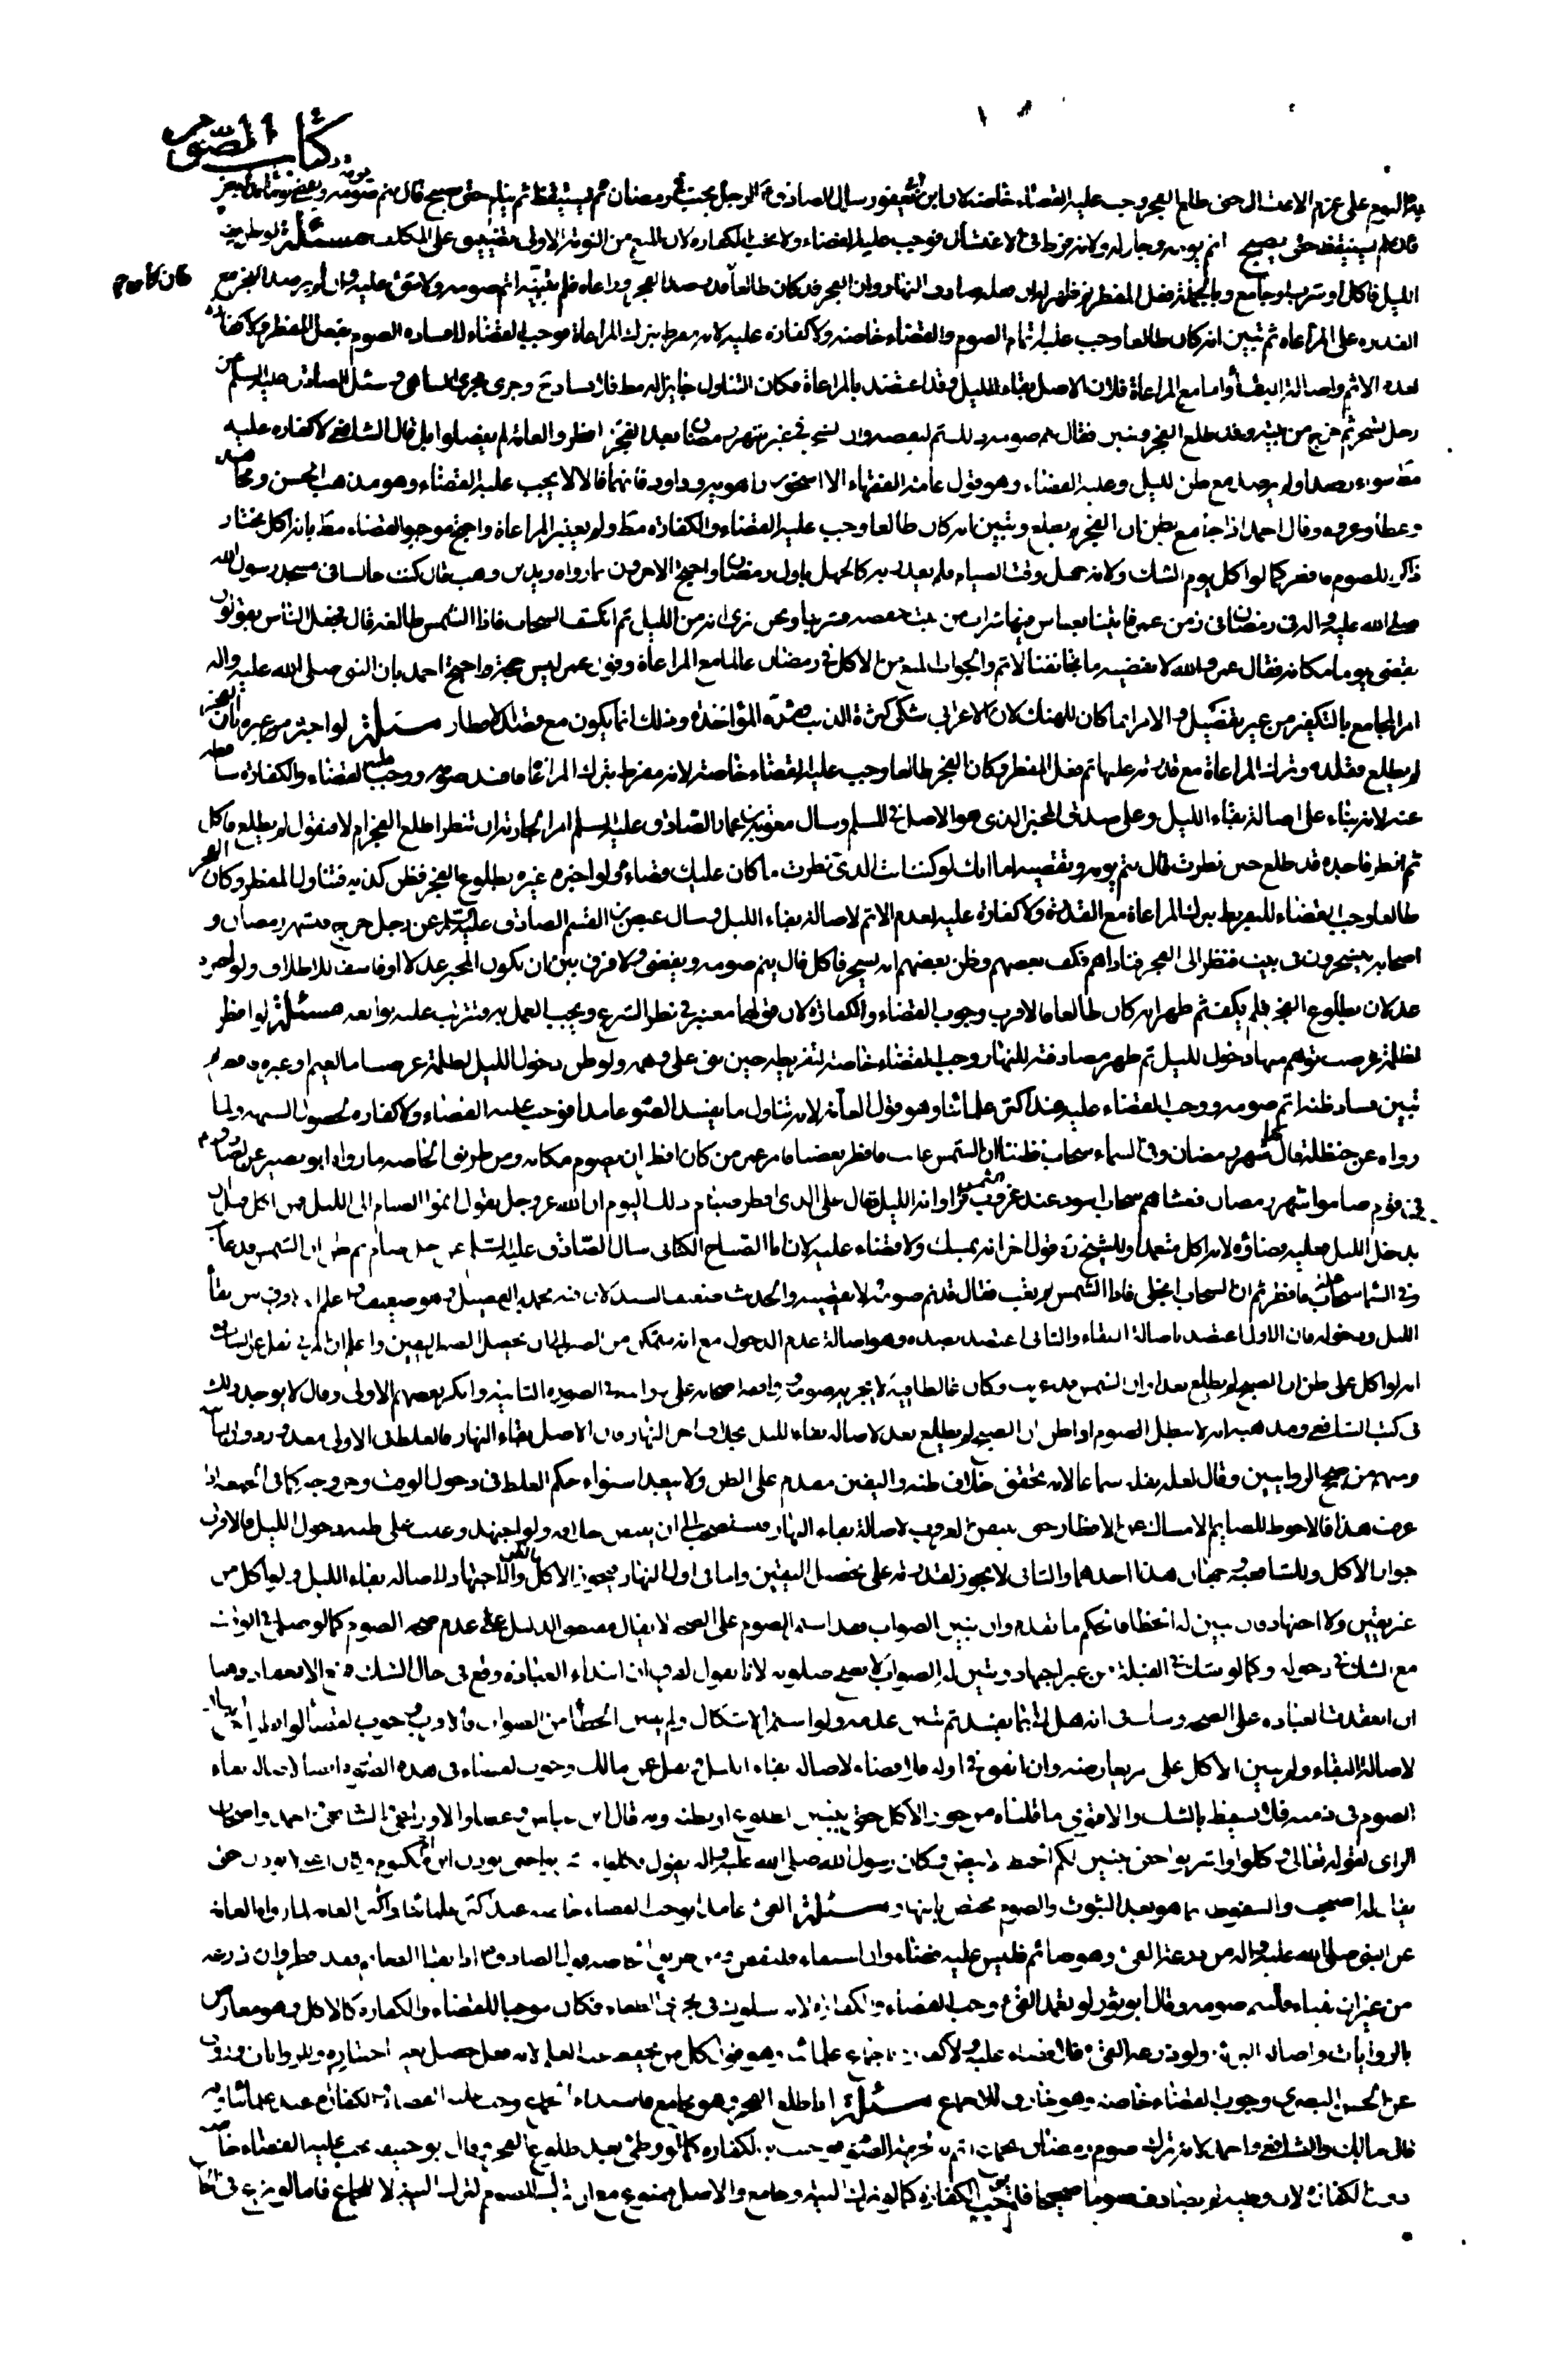 كتاب الصوم
النوم على عزم الاغتسال حتى طلع الفجر وجب عليه القضاء خاصة لان ابن ابي يعفور سال الصادق الرجل يجنب في رمضان ثم يستيقظ ثم ينام حتى يصبح قال يتم صومه ويقضي يوما
فان لم يستيقظ حتى يصبح اتم يومه وجاز له ولانه فرط في الاغتسال فوجب عليه القضاء ولا يجب الكفارة لان المنع من النومة الاولى تضييق على المكلف مسئلة لو ظن بقاء
الليل فاكل او شرب او جامع وبالجملة فعل المفطر فان الفجر قد كان طالعا اتم صومه ولا شئ عليه وان لم يرصد الفجر مع
القدرة على المراعاة ثم تبين انه كان طالعا وجب عليه اتمام الصوم والقضاء خاصة ولا كفارة عليه لانه مفرط بترك المراعاة فوجب القضاء لافساده الصوم بفعل المفطر ولا كفارة
لعدم الاثم واصالة البقاء واما مع المراعاة فلان الاصل بقاء الليل وقد اعتضد بالمراعاة فكان التناول جايزا وجرى مجرى الساهي وسئل الصادق عليه السلم عن
رجل تسحر ثم خرج من بيته وقد طلع الفجر وتبين فقال يتم صومه ذلك ثم ليقضه وان تسحر في غير شهر رمضان بعد الفجر افطر والعامة لم يفصلوا بل قال الشافعي لا كفارة عليه
وعليه القضاء وهو قول عامة الفقهاء الا اسحق بن راهويه وداود فانهما قالا لا يجب عليه القضاء وهو مذهب الحسن ومجاهد
وعطا وعروة وقال احمد اذا جامع يظن ان الفجر لم يطلع وتبين انه كان طالعا وجب عليه القضاء والكفارة ولم يعتبر المراعاة واحتج موجبو القضاء بانه اكل مختارا
ذاكرا للصوم فافطر كما لو اكل يوم الشك ولانه جهل وقت الصيام فلم يعذر به كالجهل باول رمضان واحتج الاخرون بما رواه زيد بن وهب قال كنت جالسا في مسجد رسول الله
صلى الله عليه واله في رمضان في زمن عمر شراب من بيت حفصة فشربنا ونحن نرى انه من الليل ثم انكشف السحاب فاذا الشمس طالعة قال فجعل الناس يقولون
نقضي يوما مكانه فقال عمر والله لا نقضيه ما تجانفنا لاثم والجواب المنع من الاكل في رمضان عالما مع المراعاة وقول عمر ليس حجة واحتج احمد بان النبي صلى الله عليه واله
امر المجامع بالتكفير من غير تفصيل والامر انما كان للهتك لان الاعرابي شكى كثرة الذنب وشدة المؤاخذة وذلك انما يكون مع قصد الافطار مسئلة لو اخبره غيره بان الفجر
لم يطلع فقلده وترك المراعاة مع قدرته عليها ثم فعل المفطر وكان الفجر طالعا وجب عليه القضاء خاصة لانه مفرط بترك المراعاة فافسد صومه ووجب عليه القضاء والكفارة ساقطة
عنه لانه بناء على اصالة بقاء الليل وعلى صدق المخبر الذي هو الاصل في المسلم وسال معوية بن عمار الصادق عليه السلم امر الجارية ان تنظر اطلع الفجر ام لا فتقول لم يطلع فاكل
ثم انظر فاجده قد طلع حين نظرت قال يتم يومه ويقضيه اما انك لو كنت انت الذي نظرت ما كان عليك قضاؤه ولو اخبره غيره بطلوع الفجر فظن كذبه فتناول المفطر وكان الفجر
طالعا وجب القضاء للتفريط بترك المراعاة مع القدرة ولا كفارة عليه لعدم الاثم لاصالة بقاء الليل وسال عيص بن القسم الصادق عليه السلم عن رجل خرج في شهر رمضان و
اصحابه يتسحرون في بيت فنظر الى الفجر فناداهم فكف بعضهم وظن بعضهم انه يسخر فاكل قال يتم صومه ويقضي ولا فرق بين ان يكون المخبر عدلا او فاسقا للاطلاق ولو اخبره
عدلان بطلوع الفجر فلم يكف ثم ظهر انه كان طالعا فالاقرب وجوب القضاء والكفارة لان قولهما معتبر في نظر الشرع ويجب العمل به فترتب عليه توابعه مسئلة لو افطر
لظلمة عرضت توهم منها دخول الليل ثم ظهر مصادفته للنهار وجب القضاء خاصة لتفريطه حين بنى على وهمه ولو ظن دخول الليل لظلمة عرضت اما لغيم او غيره
تبين فساد ظنه اتم صومه ووجب القضاء عليه عند اكثر علمائنا وهو قول العامة لانه تناول ما يفسد الصوم عامدا فوجب عليه القضاء ولا كفارة لحصول الشبهة ولما
رواه عن حنظلة قال شهر رمضان وفي السماء سحاب فظننا ان الشمس غابت فافطر بعضنا فامر عمر من كان افطر ان يصوم مكانه ومن طريق الخاصة ما رواه ابو بصير عن الصادق
في قوم صاموا شهر رمضان فغشاهم سحاب اسود عند غروب الشمس فراوا انه الليل فقال على الذي افطر صيام ذلك اليوم ان الله عز وجل يقول اتموا الصيام الى الليل فمن اكل قبل ان
يدخل الليل فعليه قضاؤه لانه اكل متعمدا وللشيخ ره قول اخر انه يمسك ولا قضاء عليه لان ابا الصباح الكناني سال الصادق عليه السلم عن رجل صام ثم ظن ان الشمس قد غابت
وفي السماء سحاب فافطر ثم ان السحاب انجلى فاذا الشمس لم تغب فقال قد تم صومه ولا يقضيه والحديث ضعيف السند لان فيه محمد بن الفضيل وهو ضعيف
الليل ودخوله فان الاول اعتضد باصالة البقاء والثاني اعتضد بضده وهو اصالة عدم الدخول مع انه متمكن من الصبر الى ان يحصل اليقين واعلم ان المزني نقل عن الشافعي
انه لو اكل على ظن ان الصبح لم يطلع بعد او ان الشمس قد غربت وكان غالطا انه لا يجزيه صومه ووافقه اصحابه على روايته في الصورة الثانية وانكر بعضهم الاولى وقال لا يوجد ذلك
في كتب الشافعي ومذهبه انه لا يبطل الصوم اذا ظن ان الصبح لم يطلع بعد لاصالة بقاء الليل بخلاف اخر النهار فان الاصل بقاء النهار فالغلط في الاولى معذور دون الثانية
ومنهم من صحح الروايتين وقال لعله نقله سماعا لانه تحقق خلاف ظنه واليقين مقدم على الظن ولا يبعد استواء حكم الغلط في دخول الوقت وخروجه كما في الجمعة اذا
عرفت هذا فالاحوط للصايم الامساك عن الافطار حتى يتيقن الغروب لاصالة بقاء النهار فيستصحب الى ان يتيقن خلافه ولو اجتهد وغلب على ظنه دخول الليل فالاقرب
جواز الاكل وللشافعية وجهان هذا احدهما والثاني لا يجوز لقدرته على تحصيل اليقين واما في اول النهار فيجوز الاكل بالظن والاجتهاد لاصالة بقاء الليل ولو اكل من
غير يقين ولا اجتهاد فان تبين له الخطا فالحكم ما تقدم وان تبين الصواب فقد استمر الصوم على الصحة لا يقال مقتضى الدليل عدم صحة الصوم كما لو صلى في الوقت
مع الشك في دخوله وكما لو شك في القبلة من غير اجتهاد وتبين له الصواب لا تصح صلوته لانا نقول الفرق ان ابتداء العبادة وقع في حال الشك فمنع الانعقاد وهنا
ان انعقدت العبادة على الصحة وشك في انه هل اتى بما يفسد ثم تبين عدمه ولو استمر الاشكال ولم يتبين الخطا من الصواب فالاقرب وجوب القضاء لو اكل اخر النهار
لاصالة البقاء ولم يبين الاكل على امر يعارضه وان اتفق في اوله فلا قضاء لاصالة بقاء الليل ونقل عن مالك وجوب القضاء في هذه الصورة ايضا لاصالة بقاء
الصوم في ذمته فلا يسقط بالشك والاقوى ما قلناه من جواز الاكل حتى يتيقن الطلوع او يظنه وبه قال ابن عباس وعطا والاوزاعي والشافعي احمد واصحاب
الراي لقوله تعالى وكلوا واشربوا حتى يتبين لكم الخيط الابيض وكان رسول الله صلى الله عليه واله يقول فكلوا حتى يؤذن ابن ام مكتوم وكان لا يؤذن حتى
يقال له اصبحت والسقوط انما هو بعد الثبوت والصوم مختص بالنهار مسئلة القئ عامدا يوجب القضاء خاصة عند اكثر علمائنا واكثر العامة لما رواه العامة
عن النبي صلى الله عليه واله من ذرعه القئ وهو صائم فليس عليه قضاء وان استقاء فليقض ومن طريق الخاصة قول الصادق ع اذا تقيا الصائم فقد افطر وان ذرعه
من غير ان يتقياء فليتم صومه وقال ابو ثور لو تعمد القئ وجب القضاء والكفارة فكان موجبا للقضاء والكفارة كالاكل وهو معارض
بالروايات واصالة البراءة ولو ذرعه القئ فلا قضاء عليه ولا كفارة باجماع علمائنا وهو قول كل من يحفظ عنه العلم لانه فعل حصل بغير اختياره وللروايات وروي
عن الحسن البصري وجوب القضاء خاصة وهو خارق للاجماع مسئلة اذا طلع الفجر وهو مجامع فاستدام الجماع وجب عليه القضاء والكفارة عند علمائنا وبه
قال مالك والشافعي واحمد لانه ترك صوم رمضان بجماع اثم به لحرمة الصوم فوجبت به الكفارة كما لو وطئ بعد طلوع الفجر وقال ابو حنيفة يجب عليه القضاء خاصة
دون الكفارة لان وطيه لم يصادف صوما صحيحا فلم يوجب الكفارة كما لو ترك النية وجامع والاصل ممنوع